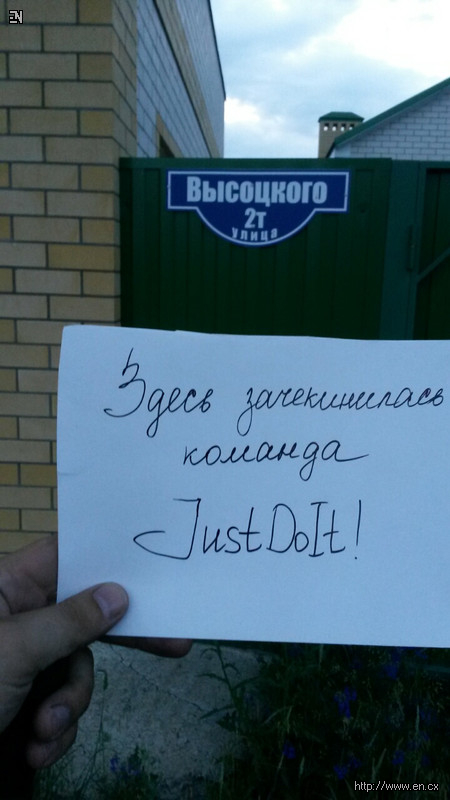 EN
Высоцкого
2т
улица
Здесь зачекинилась
команда
JustDoIt!
http://www.en.cx